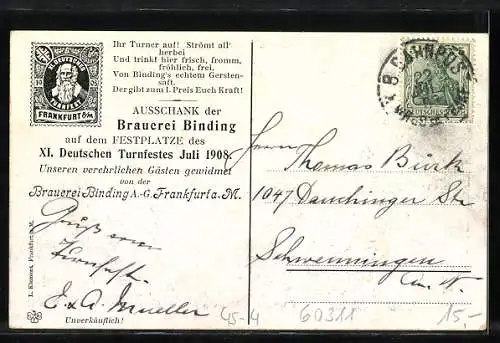 XI. DEUTSCHES
TURNFEST
FRANKFURT a/M
Ihr Turner auf! Strömt all'
herbei
Und trinkt hier frisch, fromm,
fröhlich, frei.
Von Binding's echtem Gersten-
saft.
Der gibt zum I. Preis Euch Kraft!
AUSSCHANK der
Brauerei Binding
auf dem FESTPLATZE des
XI. Deutschen Turnfestes Juli 1908.
Unseren verehrlichen Gästen gewidmet
von der
Brauerei Binding A.-G. Frankfurt a. M.
Gruß vom
Turnfest
E. & A. Mueller
Unverkäuflich!
L. Klement, Frankfurt a. M.
BAHNPOST
Herrn Thomas Bürk
1047 Dauchinger Str
Schwenningen
a. N.
45-4
60311
15,-